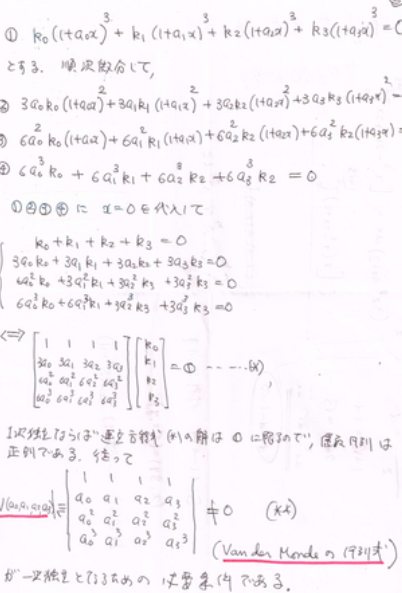 ① k₀(1+a₀x)³ + k₁(1+a₁x)³ + k₂(1+a₂x)³ + k₃(1+a₃x)³ = 0
とする. 順次微分して,
② 3a₀k₀(1+a₀x)² + 3a₁k₁(1+a₁x)² + 3a₂k₂(1+a₂x)² + 3a₃k₃(1+a₃x)² =
③ 6a₀²k₀(1+a₀x) + 6a₁²k₁(1+a₁x) + 6a₂²k₂(1+a₂x) + 6a₃²k₂(1+a₃x) =
④ 6a₀³k₀ + 6a₁³k₁ + 6a₂³k₂ + 6a₃³k₂ = 0
①②③④ に x=0 を代入して
k₀ + k₁ + k₂ + k₃ = 0
3a₀k₀ + 3a₁k₁ + 3a₂k₂ + 3a₃k₃ = 0
6a₀²k₀ + 3a₁²k₁ + 3a₂²k₃ + 3a₃²k₃ = 0
6a₀³k₀ + 6a₁³k₁ + 3a₂³k₃ + 3a₃³k₃ = 0
⟺
1 1 1 1 k₀
3a₀ 3a₁ 3a₂ 3a₃ k₁
6a₀² 6a₁² 6a₂² 6a₃² k₂ = 0 ----- (*),
6a₀³ 6a₁³ 6a₂³ 6a₃³ k₃
1次独立ならば 連立方程式 (*)の解は 0 に限るので, 係数行列は
正則である. 従って
1 1 1 1
V(a₀,a₁,a₂,a₃) = a₀ a₁ a₂ a₃ ≠ 0 (**)
a₀² a₁² a₂² a₃²
a₀³ a₁³ a₂³ a₃³
(Van der Mondeの行列式)
が一次独立となるための 必要条件である.